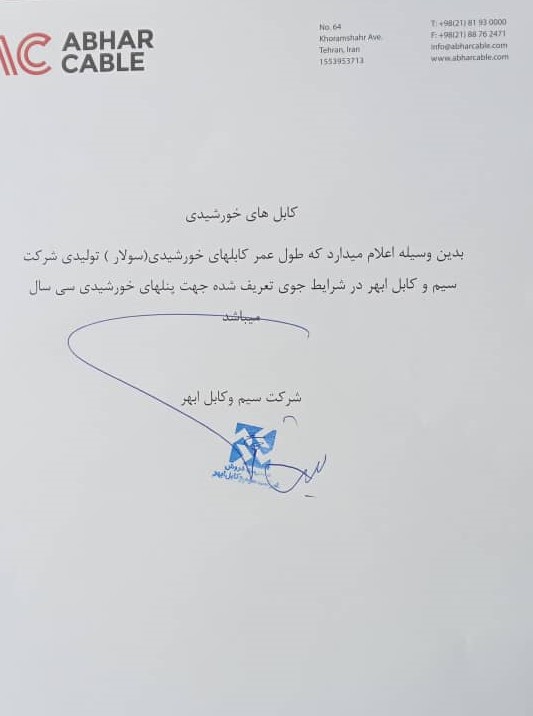 ABHAR
CABLE
No. 64
Khoramshahr Ave.
Tehran, Iran
1553953713
T: +98(21) 81 93 0000
F: +98(21) 88 76 2471
info@abharcable.com
www.abharcable.com
کابل های خورشیدی
بدین وسیله اعلام میدارد که طول عمر کابلهای خورشیدی(سولار ) تولیدی شرکت
سیم و کابل ابهر در شرایط جوی تعریف شده جهت پنلهای خورشیدی سی سال
میباشد
شرکت سیم وکابل ابهر
فروش
وکابل ابهر